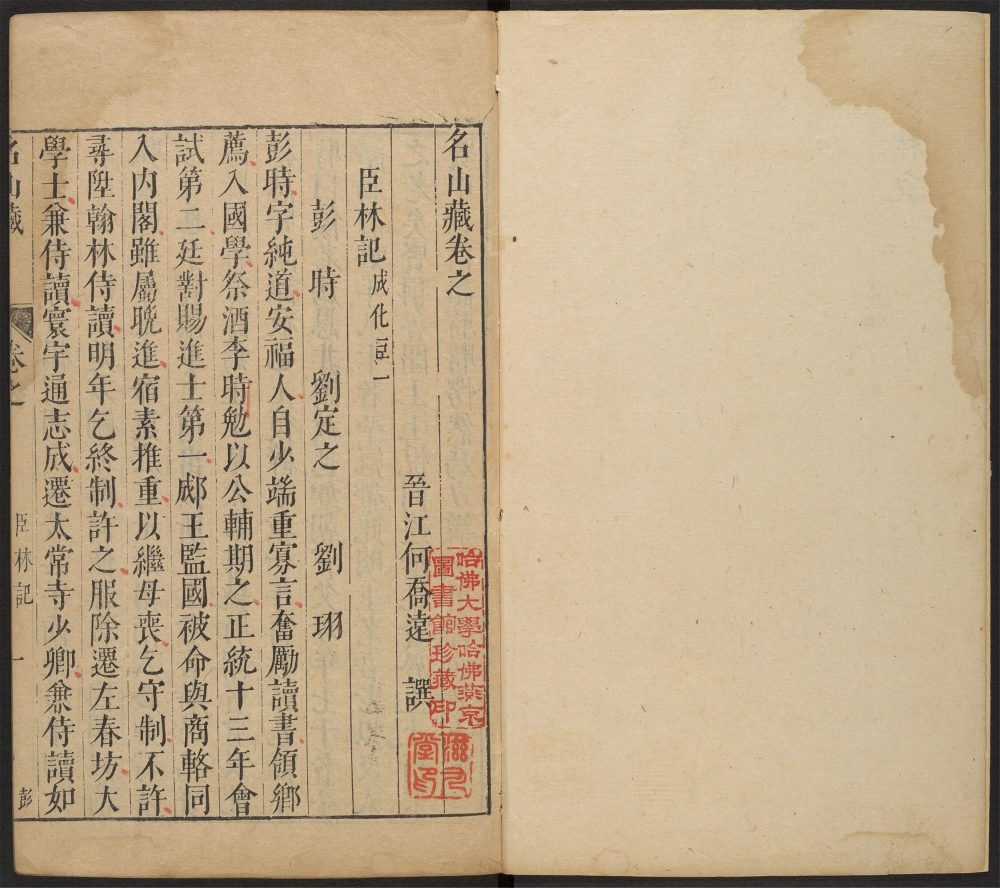 名山藏卷之
晉江何喬遠 譔
臣林記 成化臣一
彭 時 劉定之 劉 珝
彭時字純道安福人自少端重寡言奮勵讀書領鄉
薦入國學祭酒李時勉以公輔期之正統十三年會
試第二廷對賜進士第一郕王監國被命與商輅同
入內閣雖屬晚進宿素推重以繼母喪乞守制不許
尋陞翰林侍讀明年乞終制許之服除遷左春坊大
學士兼侍讀寰宇通志成遷太常寺少卿兼侍讀如
名山藏 卷之 臣林記 一 彭
哈佛大學哈佛燕京
圖書館珍藏印